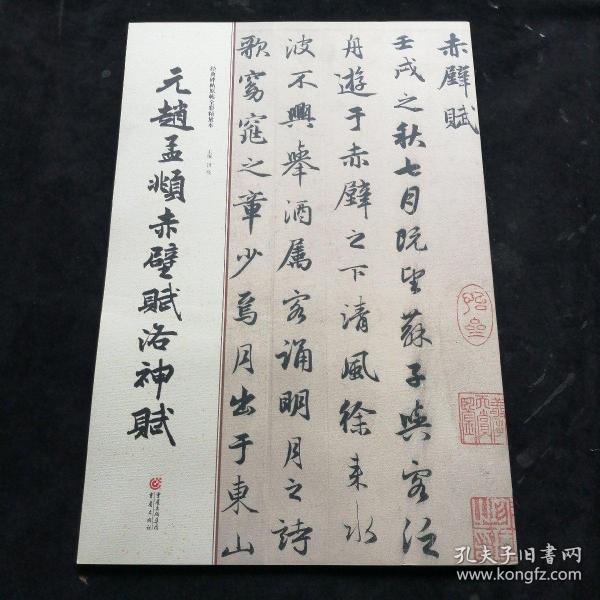 赤壁賦
壬戌之秋七月既望蘇子與客泛
舟遊于赤壁之下清風徐來水
波不興舉酒屬客誦明月之詩
歌窈窕之章少焉月出于東山
经典碑帖原帖全彩精放本
元趙孟頫赤壁賦洛神賦
重庆出版集团
重庆出版社
孔夫子旧书网
www.kongfz.com